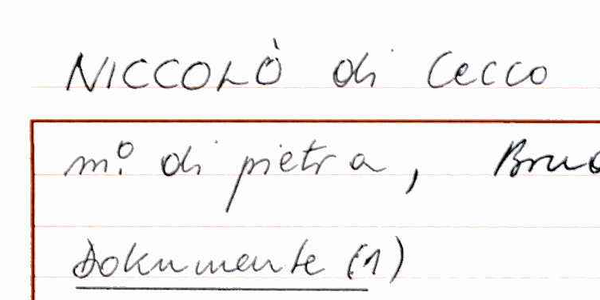 NICCOLÒ di Cecco
m.º di pietra,
Dokumente (1)